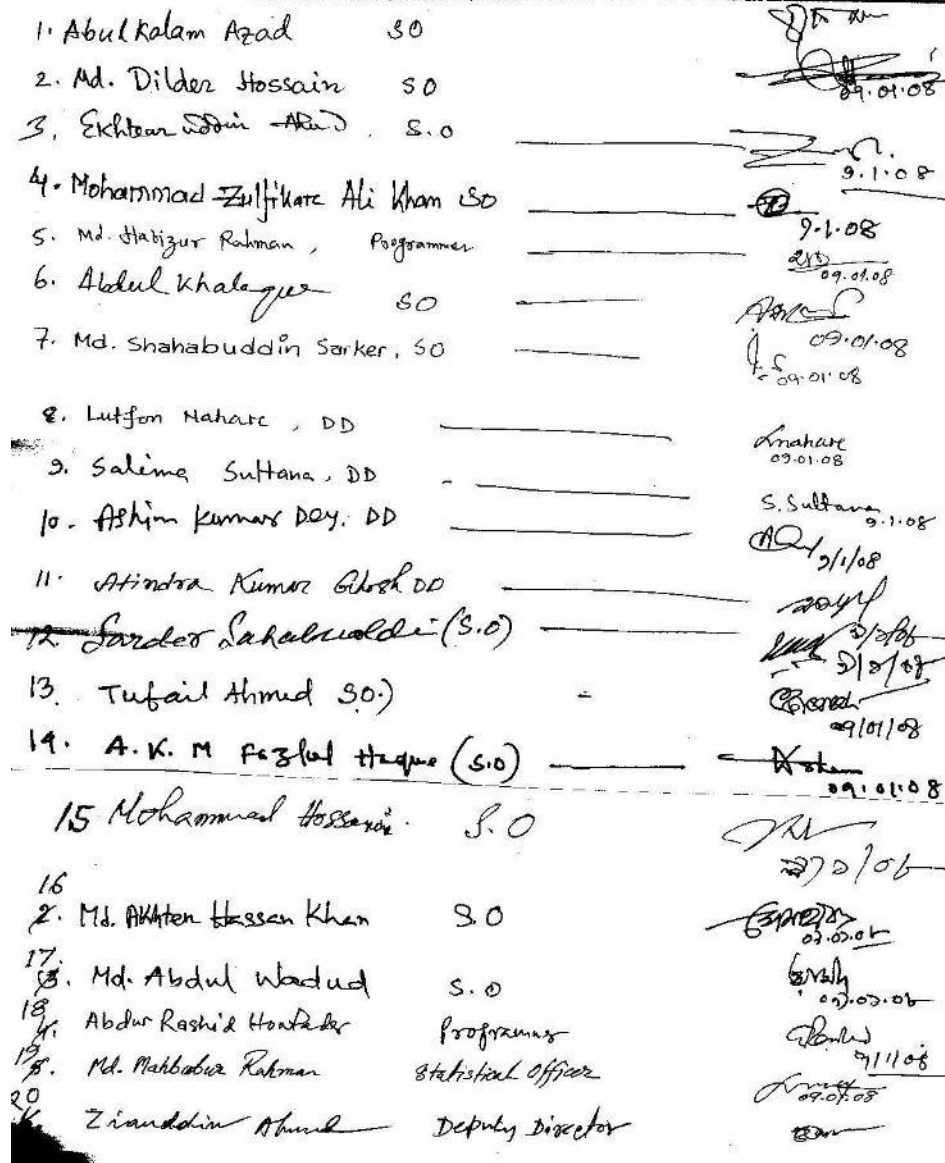 1. Abul Kalam Azad SO
2. Md. Dilder Hossain SO 09.01.08
3. Ekhtear uddin S.O 9.1.08
4. Mohammad Zulfikare Ali Khan SO 9.1.08
5. Md. Habizur Rahman, Programmer 09.01.08
6. Abdul Khaleque SO 09.01.08
7. Md. Shahabuddin Sarker, SO 09.01.08
8. Lutfon Nahare, DD Lnahare
09.01.08
9. Salima Sultana, DD S. Sultana
9.1.08
10. Ashim Kumar Dey. DD 9/1/08
11. Atindra Kumar Ghosh DD
12 Sarder Sahabuddin (S.O)
13. Tufail Ahmed SO.)
09/01/08
14. A.K.M Fazlul Haque (S.O)
09.01.08
15 Mohammad Hossain. S.O
16
2. Md. Akhten Hassan Khan S.O
০৯.০১.০৮
17.
3. Md. Abdul Wadud S.O
০৯.০১.০৮
18
4. Abdur Rashid Programmer
19
5. Md. Mahbubur Rahman Statistical Officer 9/1/08
09.01.08
20
Ziauddin Ahmed Deputy Director